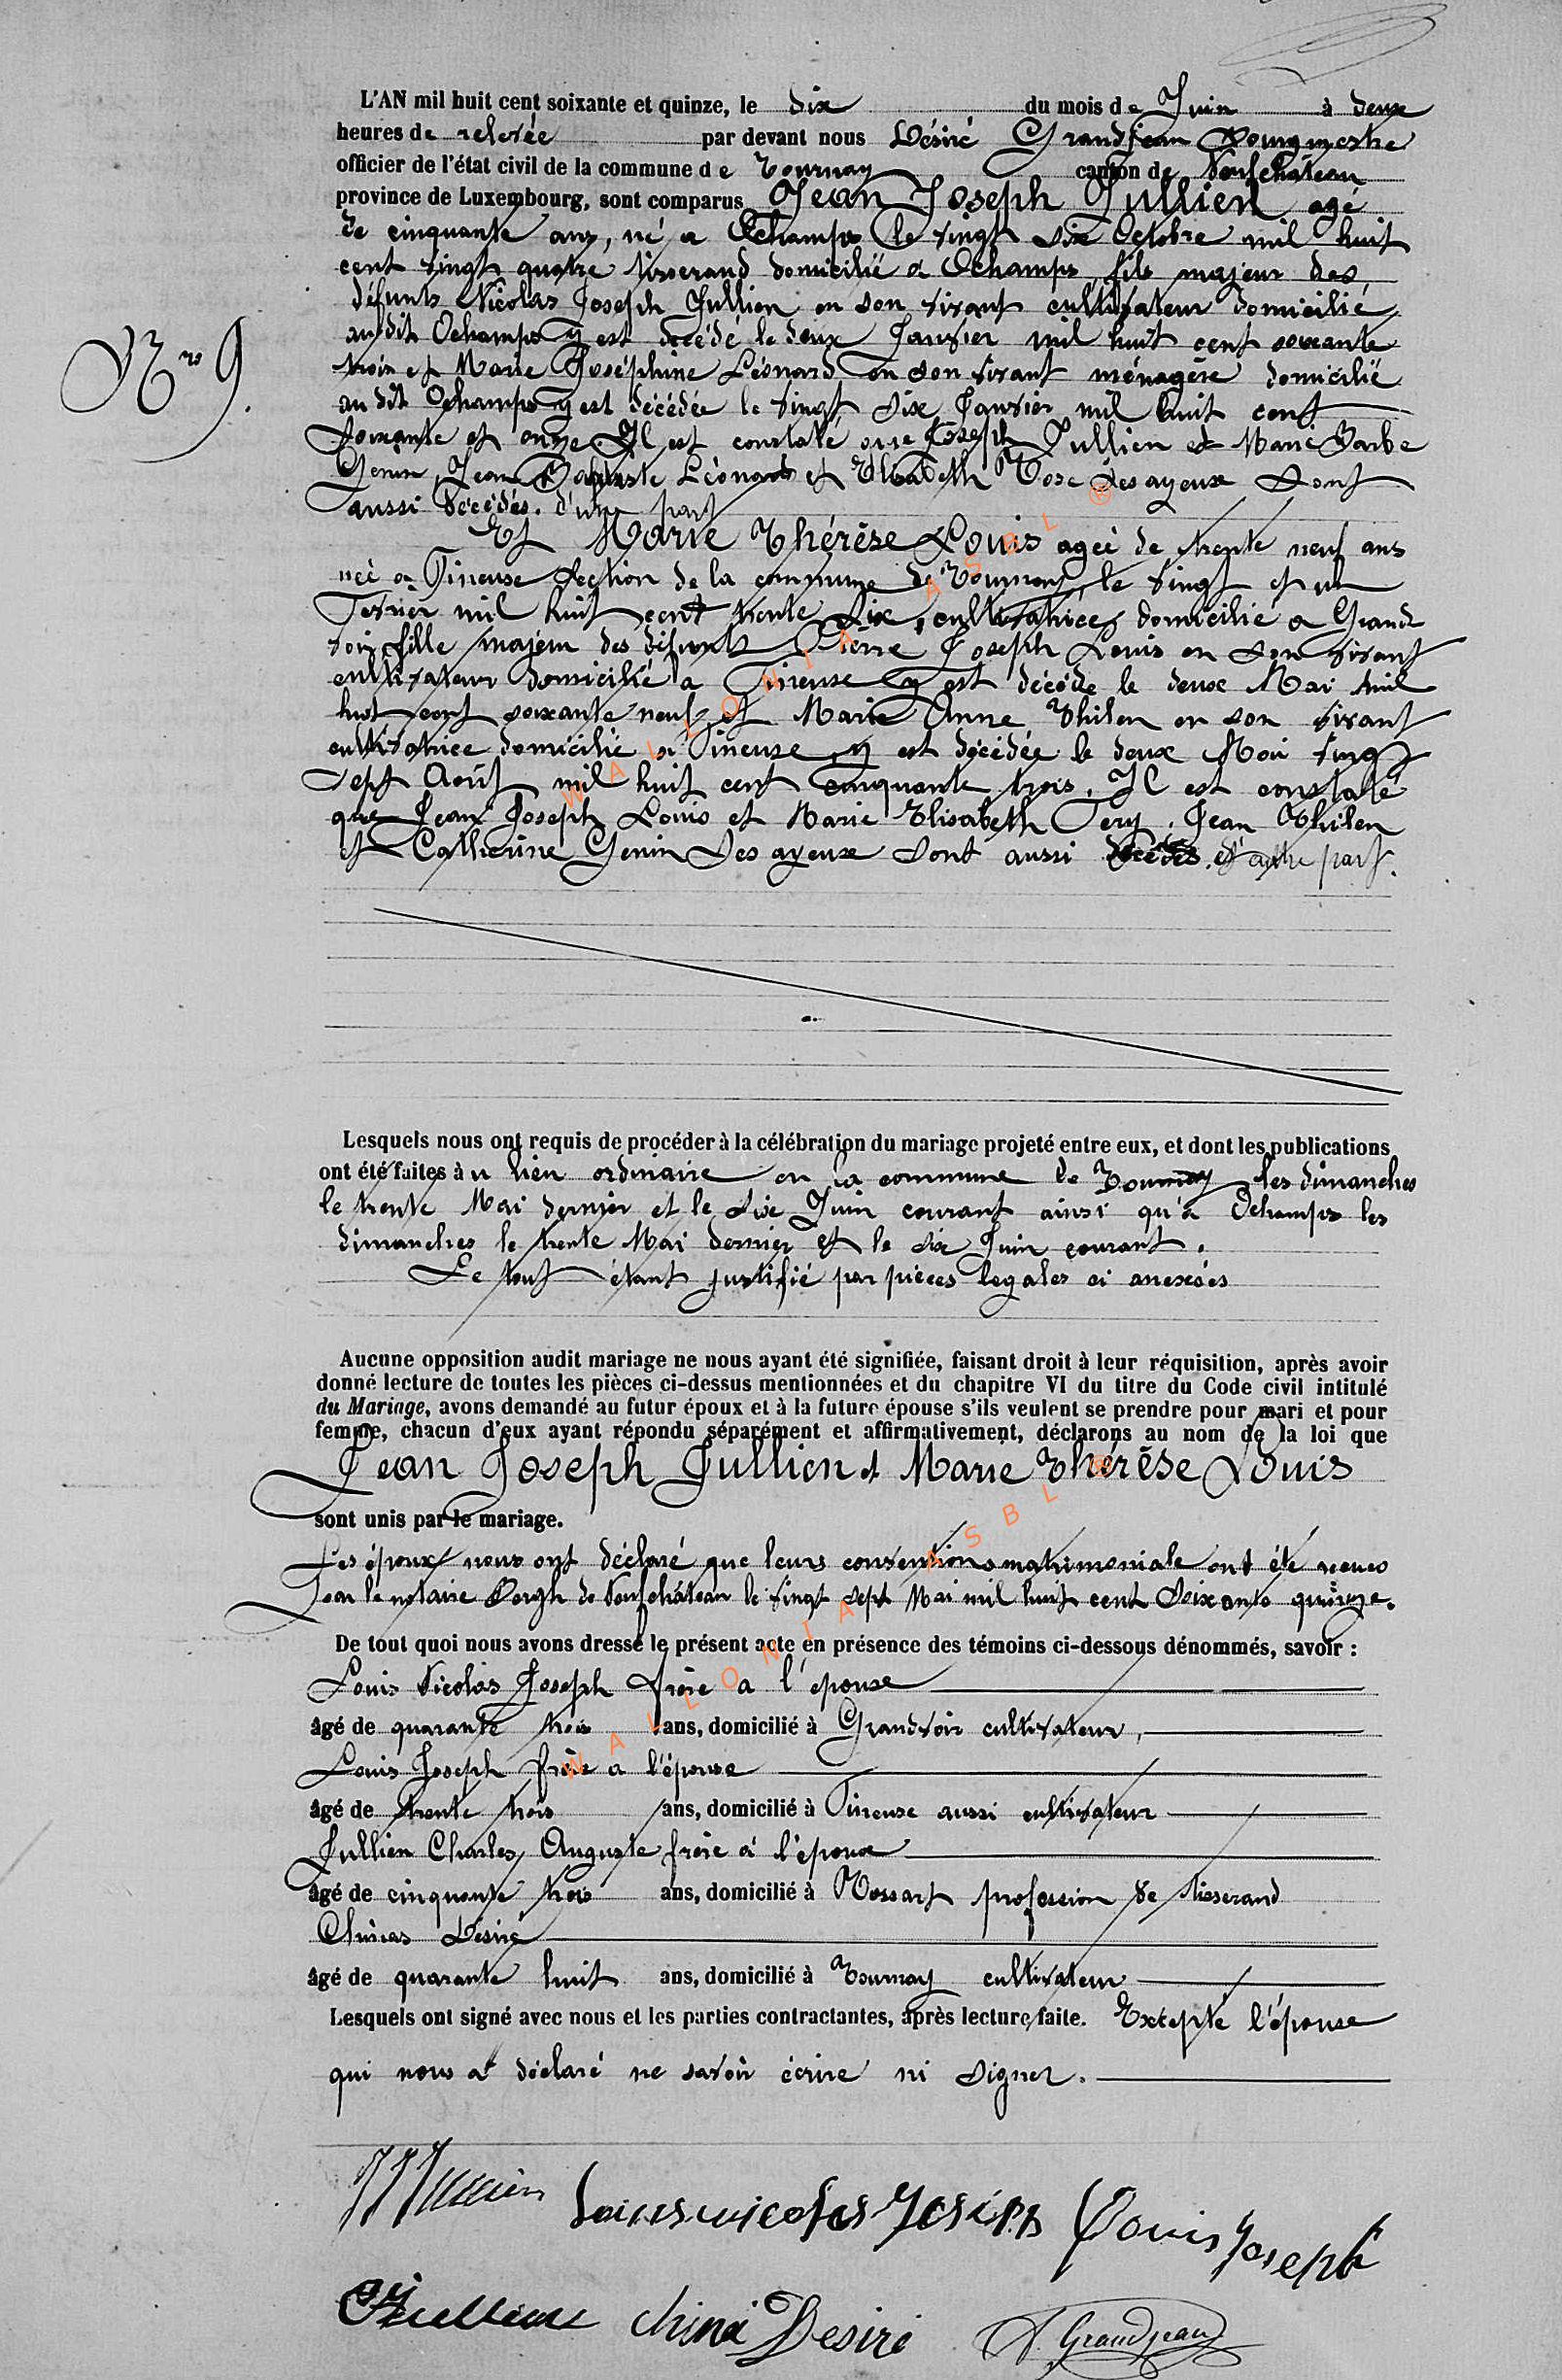 L'AN mil huit cent soixante et quinze, le dix du mois de Juin à deux
heures de relevée par devant nous Désiré Grandjean Bourgmestre
officier de l'état civil de la commune de Tournay canton de Neufchâteau
province de Luxembourg, sont comparus Jean Joseph Jullien agé
de cinquante ans, né a Ochamps le vingt six Octobre mil huit
cent vingt quatre tisserand domicilié a Ochamps, fils majeur des
défunts Nicolas Joseph Jullien en son vivant cultivateur domicilié
audit Ochamps y est décédé le deux Janvier mil huit cent soixante
trois et Marie Joséphine Léonard en son vivant ménagère domicilié
au dit Ochamps y est décédée le vingt six Janvier mil huit cent
soixante et onze. Il est constaté que Joseph Jullien et Marie Barbe
Genin, Jean Baptiste Léonard et Elisabeth Rose des ayeux sont
aussi décédés. d'une part
Nro 9.
Et Marie Thérèse Louis ageé de trente neuf ans
neé a Tineuse section de la commune de Tournay, le vingt et un
Fevrier mil huit cent trente six, cultivatrice, domicilié a Grand
voir fille majeur des défunts Pierre Joseph Louis en son vivant
cultivateur domicilié a Tineuse y est décédé le deux Mai mil
huit cent soixante neuf et Marie Anne Thilen en son vivant
cultivatrice domicilié a Tineuse, y est décédée le deux Mai vingt
sept Août mil huit cent cinquante trois. Il est constaté
que Jean Joseph Louis et Marie Elisabeth Fery, Jean Thilen
et Catherine Genin des ayeux sont aussi décédés. d'autre part.
Lesquels nous ont requis de procéder à la célébration du mariage projeté entre eux, et dont les publications
ont été faites au lieu ordinaire en la commune de Tournay les dimanches
le trente Mai dernier et le six Juin courant ainsi qu'à Ochamps les
dimanches le trente Mai dernier et le six Juin courant.
Le tout étant justifié par pièces legales ci anexées
Aucune opposition audit mariage ne nous ayant été signifiée, faisant droit à leur réquisition, après avoir
donné lecture de toutes les pièces ci-dessus mentionnées et du chapitre VI du titre du Code civil intitulé
du Mariage, avons demandé au futur époux et à la future épouse s'ils veulent se prendre pour mari et pour
femme, chacun d'eux ayant répondu séparément et affirmativement, déclarons au nom de la loi que
Jean Joseph Jullien et Marie Thérèse Louis
sont unis par le mariage.
Les époux nous ont déclaré que leurs conventions matrimoniale ont été recues
par le notaire de Neufchâteau le vingt sept Mai mil huit cent soixante quinze.
De tout quoi nous avons dressé le présent acte en présence des témoins ci-dessous dénommés, savoir :
Louis Nicolas Joseph frère a l'épouse
âgé de quarante trois ans, domicilié à Grandvoir cultivateur,
Louis Joseph frère a l'épouse
âgé de trente trois ans, domicilié à Tineuse aussi cultivateur
Jullien Charles Auguste frère à l'époux
âgé de cinquante trois ans, domicilié à Rossart profession de tisserand
Désiré
âgé de quarante huit ans, domicilié à Tournay cultivateur
Lesquels ont signé avec nous et les parties contractantes, après lecture faite. Excepté l'épouse
qui nous a déclaré ne savoir écrire ni signer.
JJ Jullien Louis nicolas Joseph Louis Joseph
Jullien Desiré D. Grandjean
WALLONIA ASBL ®
WALLONIA ASBL ®